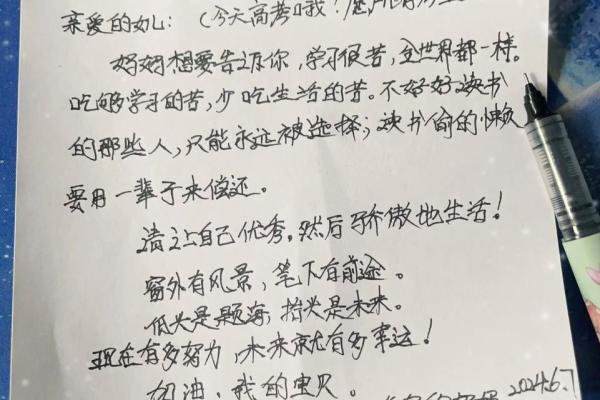 亲爱的女儿:(今天高考哦!愿所有
妈妈想要告诉你,学习很苦,全世界都一样。
吃够学习的苦,少吃生活的苦。不好好读书
的那些人,只能永远被选择;读书偷的懒
要用一辈子来偿还。
请让自己优秀,然后骄傲地生活!
窗外有风景,笔下有前途。
低头是题海,抬头是未来。
现在有多努力,未来就有多幸运!
加油,我的宝贝。
2024.6.7